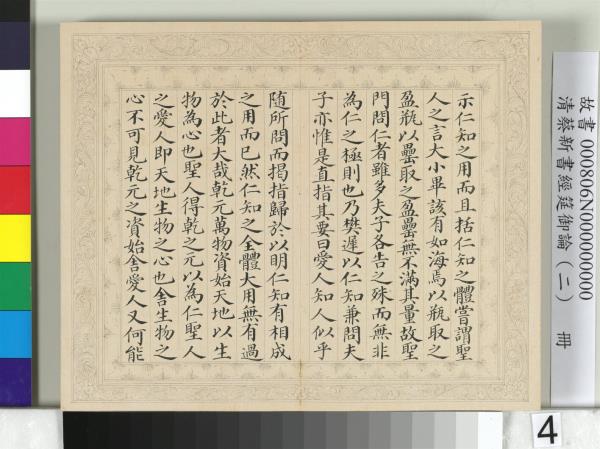 示仁知之用而且括仁知之體嘗謂聖
人之言大小畢該有如海焉以瓶取之
盈瓶以罍取之盈罍無不滿其量故聖
門問仁者雖多夫子各告之殊而無非
為仁之極則也乃樊遲以仁知兼問夫
子亦惟是直指其要曰愛人知人似乎
随所問而揭指歸於以明仁知有相成
之用而已然仁知之全體大用無有過
於此者大哉乾元萬物資始天地以生
物為心也聖人得乾之元以為仁聖人
之愛人即天地生物之心也舍生物之
心不可見乾元之資始舍愛人又何能
故書 000806N000000000
清蔡新書經筵御論(二) 冊
4